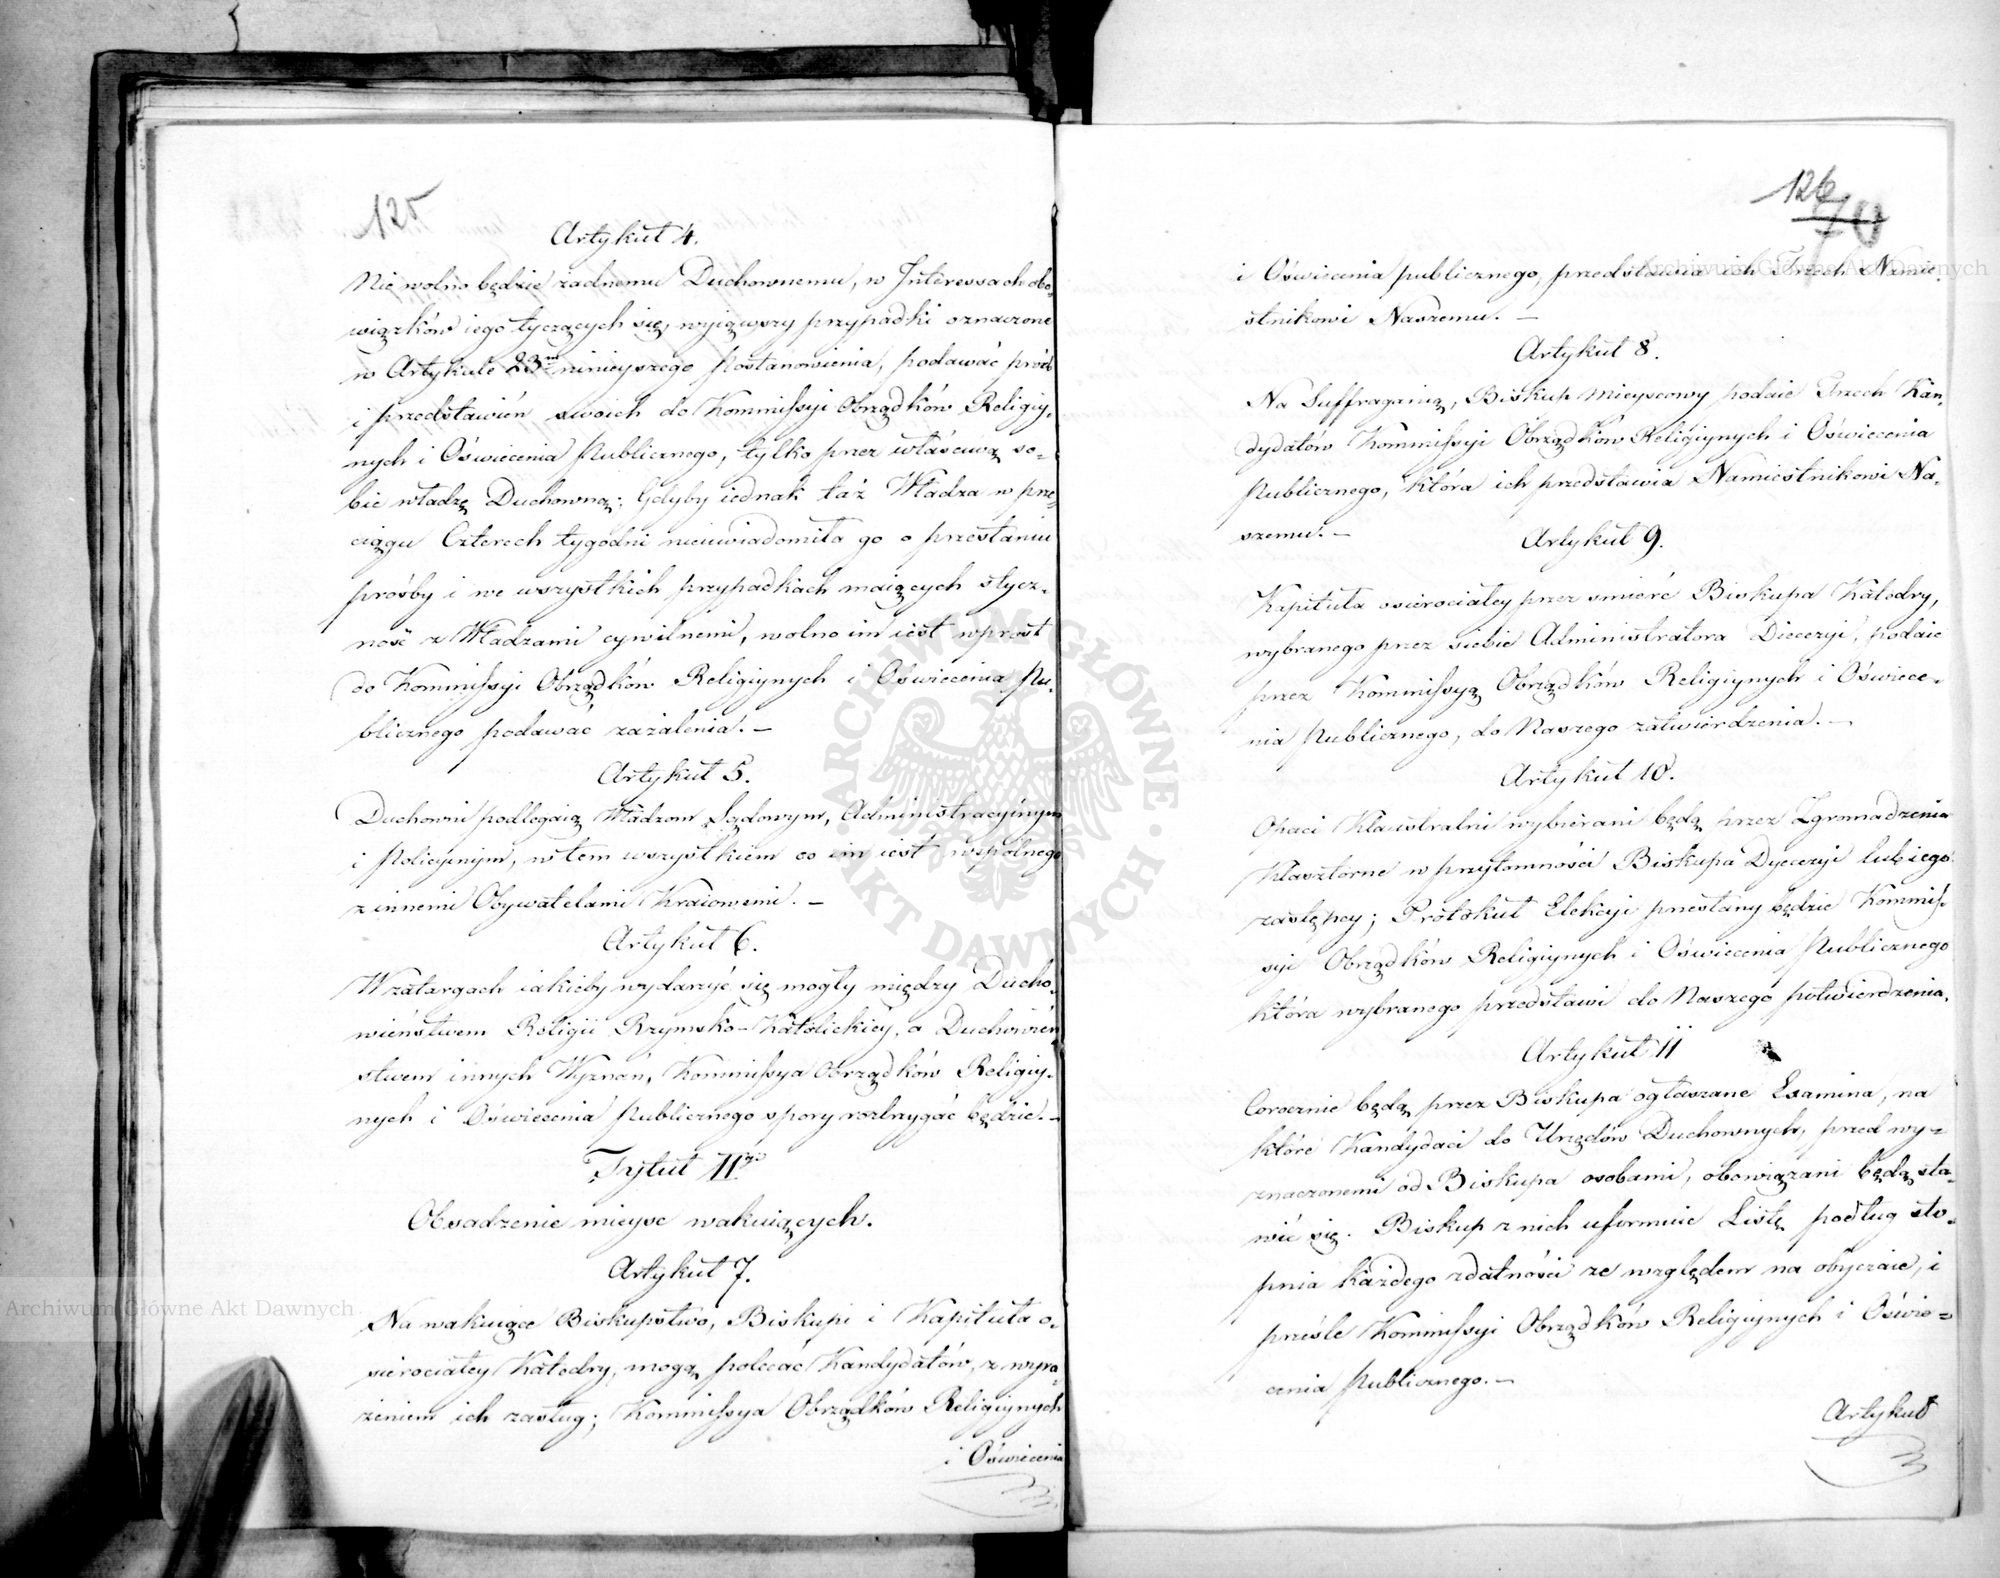 125
Artykuł 4.
Nie wolno będzie żadnemu Duchownemu, w Interessach obo-
wiązków iego tyczących się, wyiąwszy przypadki oznaczone
w Artykule 23m ninieyszego Postanowienia, podawać proźb
i przedstawień swoich do Kommissyi Obrządków Religiy-
nych i Oświecenia Publicznego, tylko przez właściwą so-
bie władzę Duchowną; Gdyby iednak taż Władza w prze-
ciągu Czterech tygodni nieuwiadomiła go o przesłaniu
prośby i we wszystkich przypadkach maiących stycz-
ność z Władzami cywilnemi, wolno im iest wprost
do Kommissyi Obrządków Religiynych i Oświecenia Pu-
blicznego podawać zażalenia. —
Artykuł 5.
Duchowni podlegaią Władzom Sądowym, Administracyinym
i Policyinym, w tem wszystkiem co im iest wspólnego
z innemi Obywatelami Kraiowemi. —
Artykuł 6.
W zatargach iakieby wydarzyć się mogły między Ducho-
wieństwem Religii Rzymsko-Katolickiey, a Duchowień
stwem innych Wyznań, Kommissya Obrządków Religiy-
nych i Oświecenia Publicznego spory roztrzygać będzie. —
Tytuł IIgi
Obsadzenie mieysc wakuiących.
Artykuł 7.
Na wakuiące Biskupstwo, Biskupi i Kapituła o-
sierociałey Katedry, mogą polecać Kandydatów, z wyra-
żeniem ich zasług; Kommissya Obrządków Religiynych
i Oświecenia
126
70
i Oświecenia publicznego, przedstawia ich Trzech Namie-
stnikowi Naszemu. —
Artykuł 8.
Na Suffraganią, Biskup Mieyscowy podaie Trzech Kan-
dydatów Kommissyi Obrządków Religiynych i Oświecenia
Publicznego, która ich przedstawia Namiestnikowi Na-
szemu. —
Artykuł 9.
Kapituła osierociałey przez śmierć Biskupa Katedry,
wybranego przez siebie Administratora Diecezyi, podaie
przez Kommissyą Obrządków Religiynych i Oświece-
nia Publicznego, do Naszego zatwierdzenia. —
Artykuł 10.
Opaci Klaustralni wybierani będą przez Zgromadzenia
Klasztorne w przytomności Biskupa Dyecezyi lub iego
zastępcy; Protokuł Elekcyi przesłany będzie Kommis-
syi Obrządków Religiynych i Oświecenia Publicznego
która wybranego przedstawi do Naszego potwierdzenia.
Artykuł 11
Corocznie będą przez Biskupa ogłaszane Exsamina, na
które Kandydaci do Urzędów Duchownych, przed wy-
znaczonemi od Biskupa osobami, obowiązani będą sta-
wić się. Biskup z nich uformuie Listę podług sto-
pnia każdego zdatności ze względem na obyczaie, i
prześle Kommissyi Obrządków Religiynych i Oświe-
cenia Publicznego. —
Artykuł
Archiwum Główne Akt Dawnych
Archiwum Główne Akt Dawnych
ARCHIWUM GŁÓWNE
AKT DAWNYCH